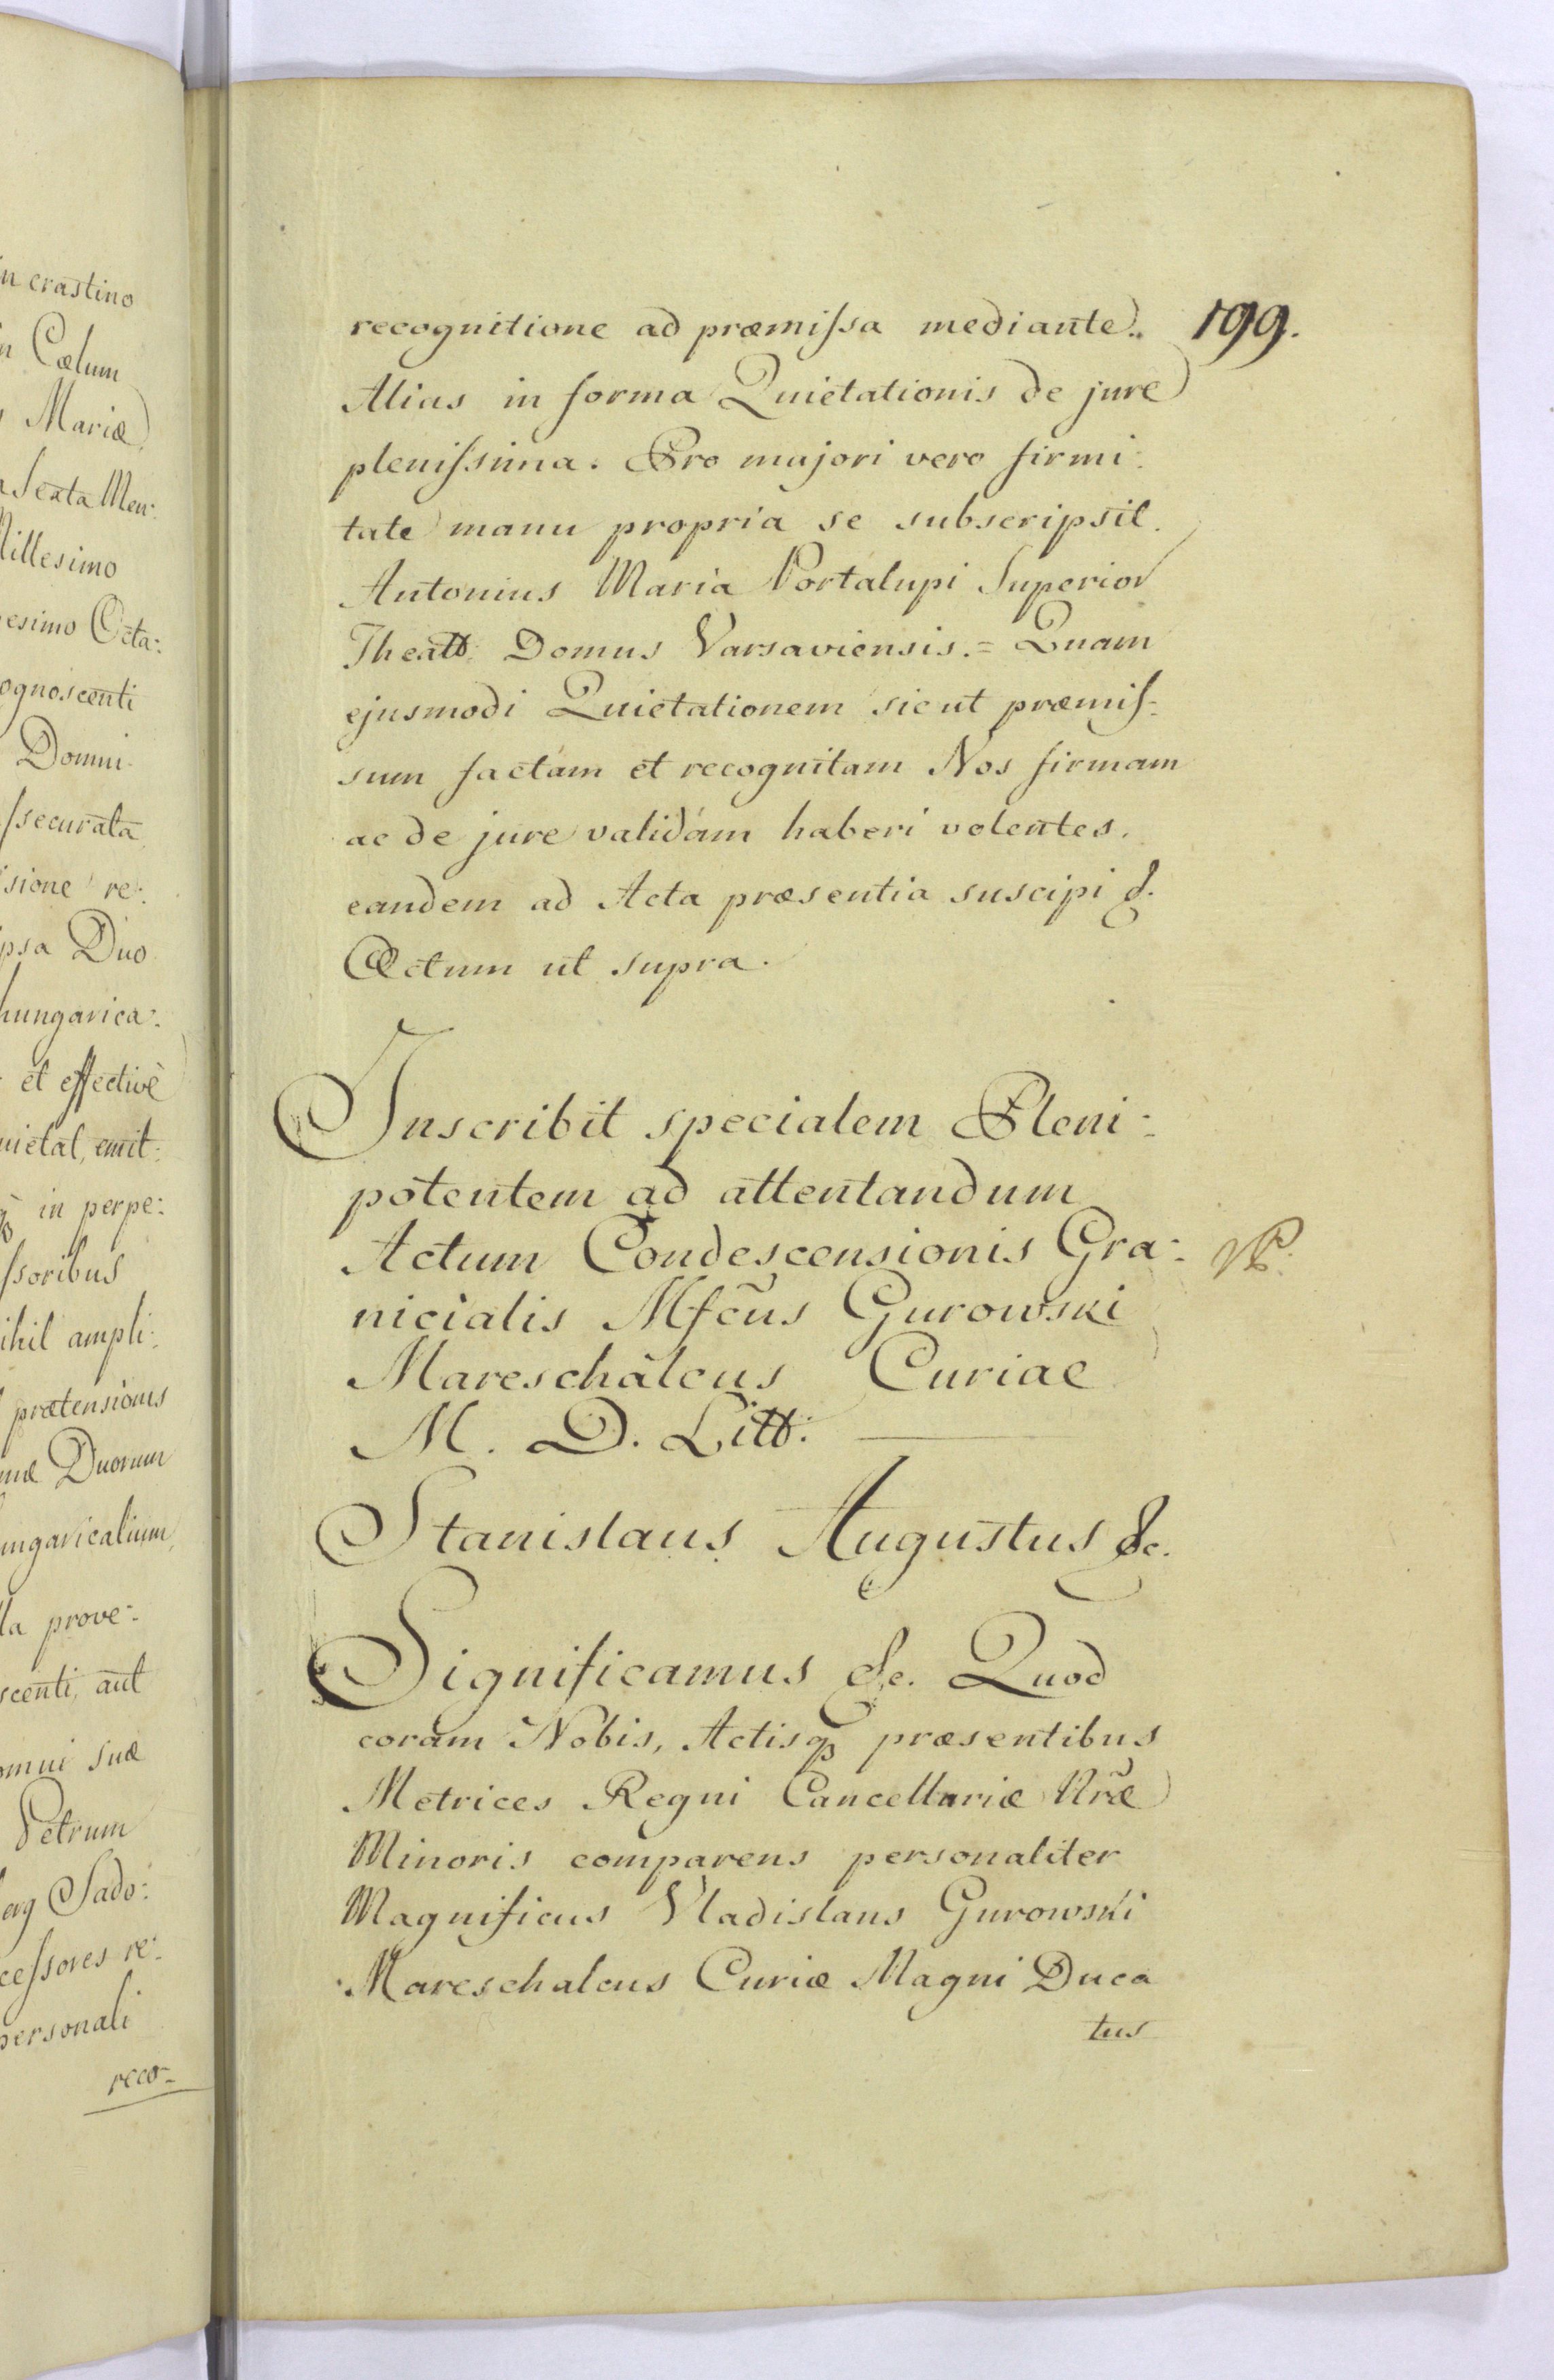 n crastino
n Cælum
Mariæ
Sexta Men:
Millesimo
esimo Octa:
ognoscenti
Domui
ssecurata
sione re:
psa Duo
hungarica:
et effectivè
uietat, emit:
in perpe:
ssoribus
ihil ampli:
prætensionis
Duorum
ungaricalium,
la prove:
scenti, aut
omui suæ
Petrum
Sado:
cessores re:
personali
reco-
recognitione ad præmissa mediante. 199.
Alias in forma Quietationis de jure
plenissima. Pro majori vero firmi:
tate manu propria se subscripsit.
Antonius Maria Portalupi Superior
Theatt: Domus Varsaviensis.= Quam
ejusmodi Quietationem sicut præmis:
sum factam et recognitam Nos firmam
ac de jure validam haberi volentes.
eandem ad Acta præsentia suscipi &.
Actum ut supra.
Inscribit specialem Pleni:
potentem ad attentandum
Actum Condescensionis Gra:
nicialis Mfcũs Gurowski
Mareschalcus Curiae
M. D. Litt:
Stanislaus Augustus &c.
Significamus &c. Quod
coram Nobis, Actisq præsentibus
Metrices Regni Cancellariæ Nræ
Minoris comparens personaliter
Magnificus Vladislaus Gurowski
Mareschalcus Curiæ Magni Duca
tus